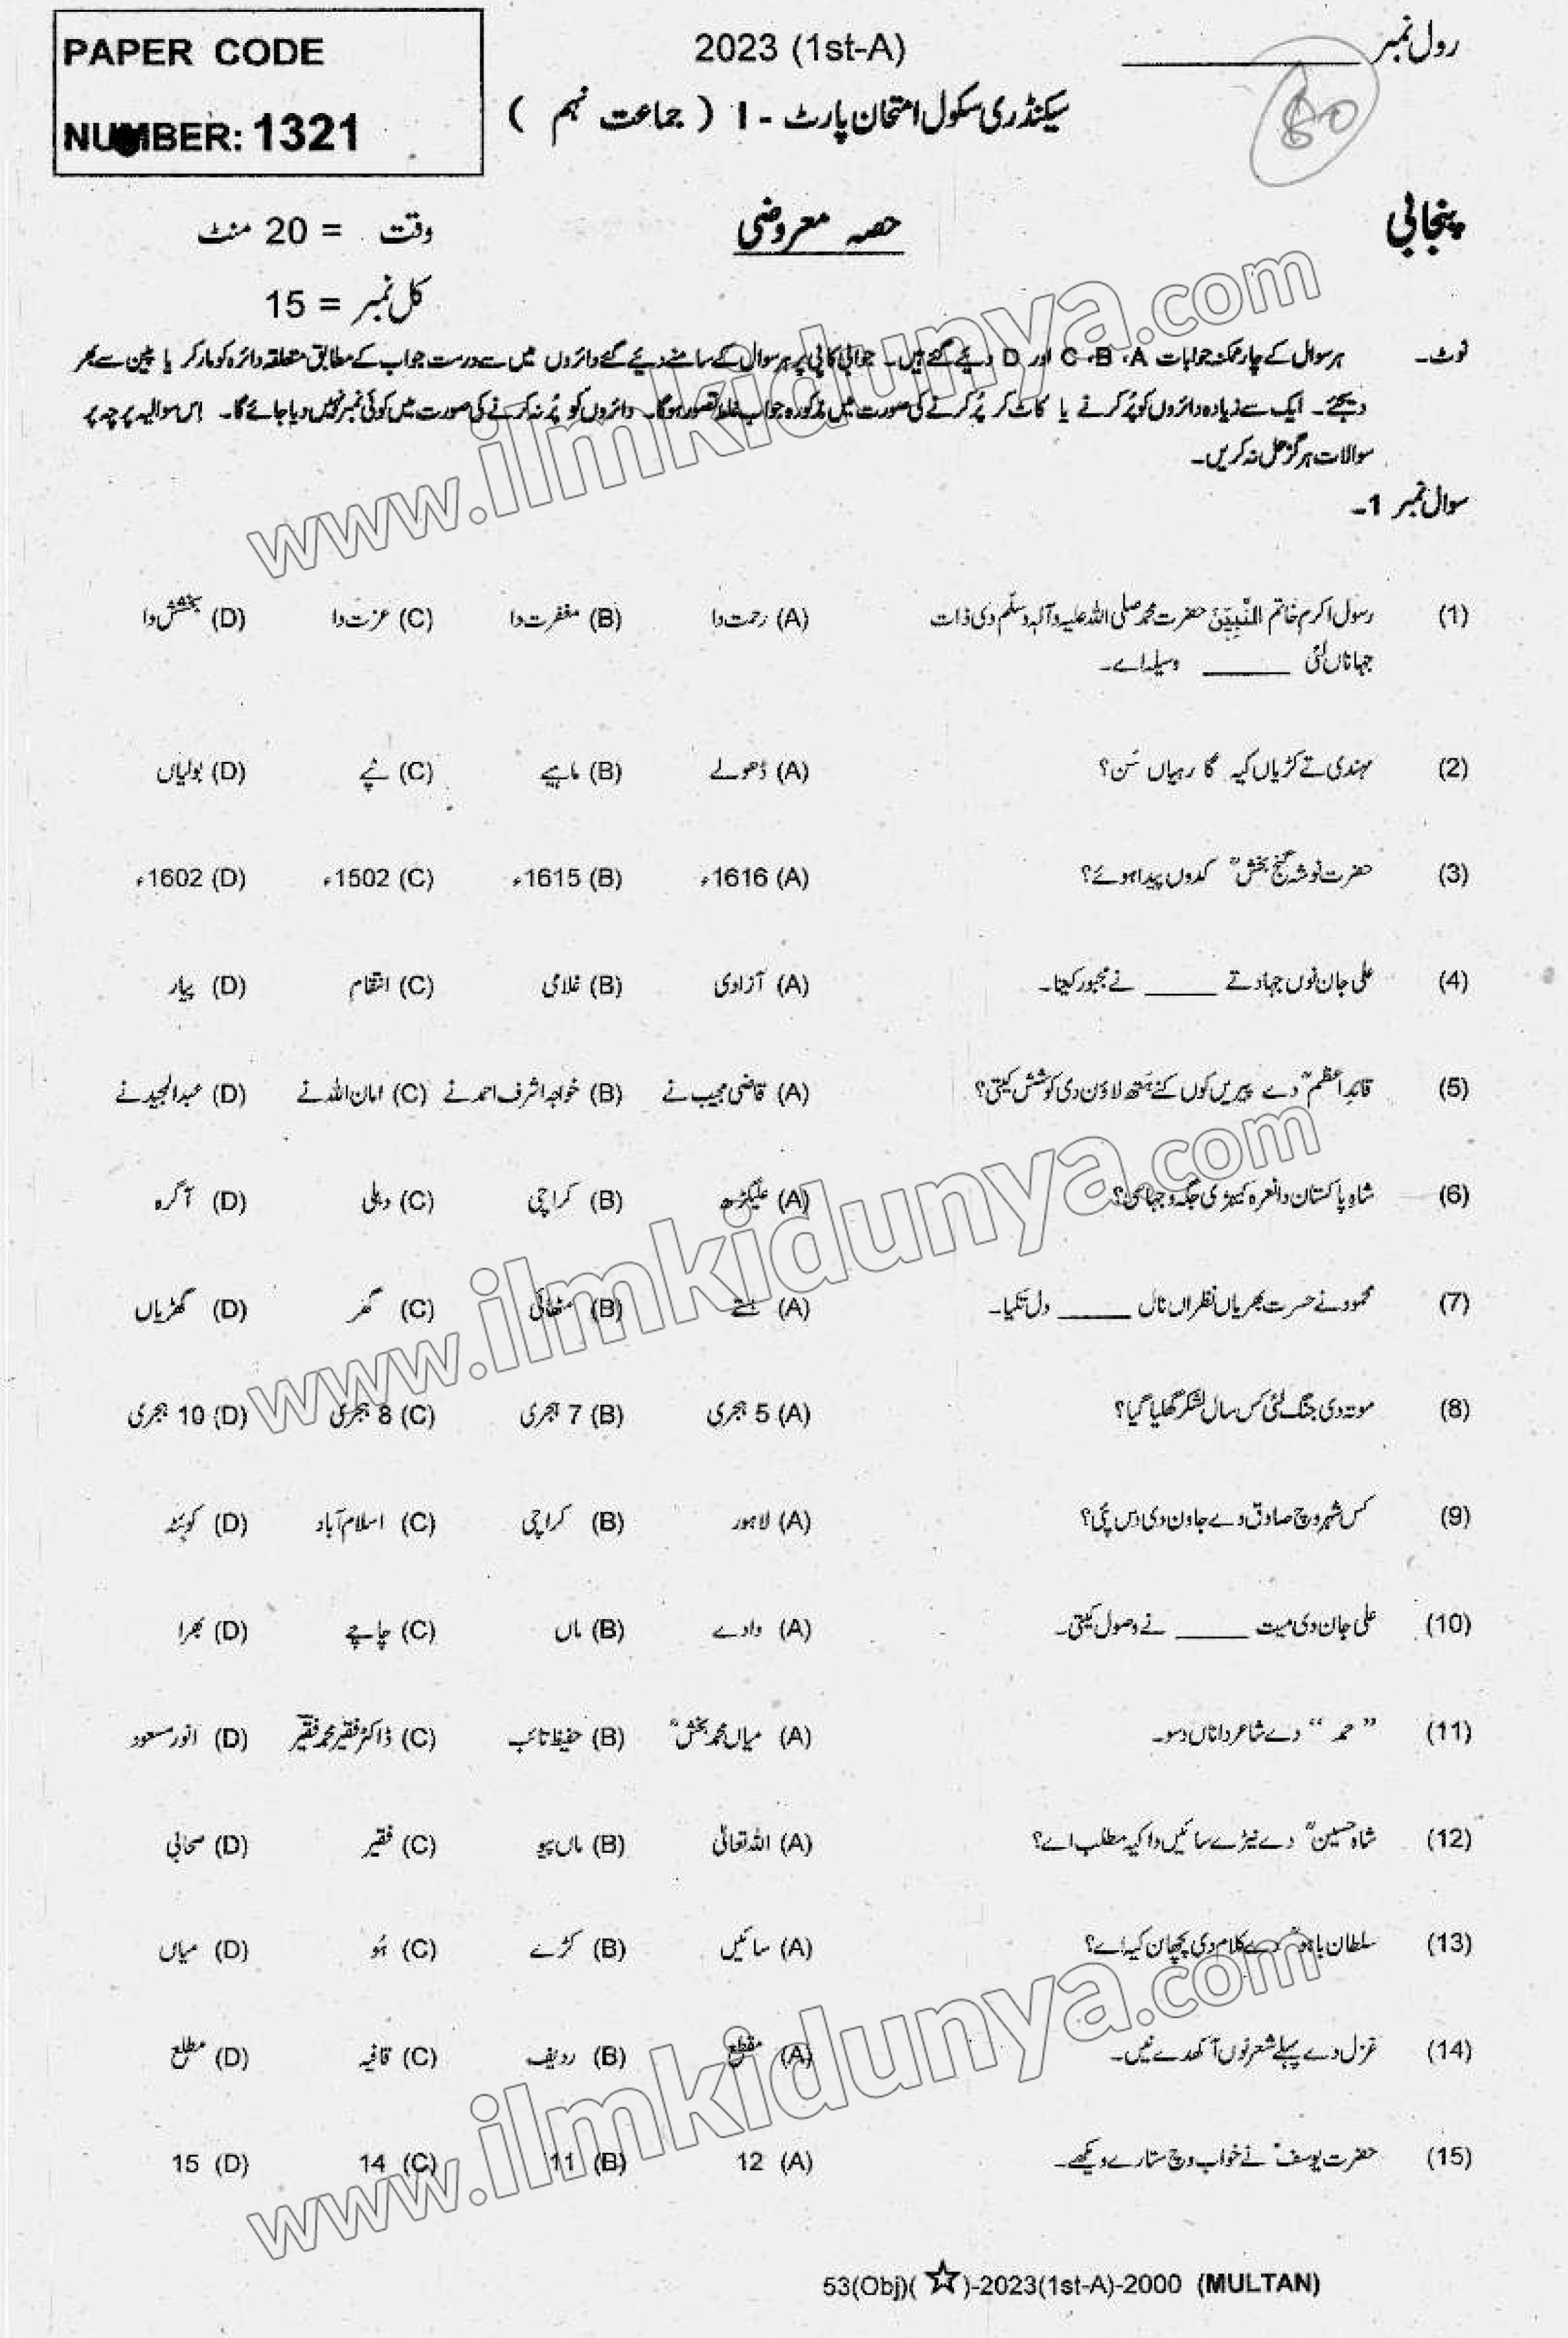 PAPER CODE
NUMBER: 1321
2023 (1st-A)
رول نمبر
سیکنڈری سکول امتحان پارٹ - I ( جماعت نہم )
80
پنجابی
حصہ معروضی
وقت = 20 منٹ
کل نمبر = 15
نوٹ۔ ہر سوال کے چار ممکنہ جوابات A، B، C اور D دیئے گئے ہیں۔ جوابی کاپی پر ہر سوال کے سامنے دیئے گئے دائروں میں سے درست جواب کے مطابق متعلقہ دائرہ کو مارکر یا پین سے بھر
دیجئے۔ ایک سے زیادہ دائروں کو پُر کرنے یا کاٹ کر پُر کرنے کی صورت میں مذکورہ جواب غلط تصور ہوگا۔ دائروں کو پُر نہ کرنے کی صورت میں کوئی نمبر نہیں دیا جائے گا۔ اس سوالیہ پرچہ پر
سوالات ہرگز حل نہ کریں۔
سوال نمبر 1۔
(1) رسول اکرم خاتم النَّبِیّٖنَ حضرت محمد صلی اللہ علیہ وآلہ وسلم دی ذات (A) رحمت دا (B) مغفرت دا (C) عزت دا (D) بخشش دا
جہاناں لئی _____ وسیلہ اے۔
(2) مہندی تے کڑیاں کیہ گا رہیاں سَن؟ (A) ڈھولے (B) ماہیے (C) ٹپے (D) بولیاں
(3) حضرت نوشہ گنج بخشؒ کدوں پیدا ہوئے؟ (A) 1616ء (B) 1615ء (C) 1502ء (D) 1602ء
(4) علی جان نوں جہاد تے _____ نے مجبور کیتا۔ (A) آزادی (B) غلامی (C) انتقام (D) پیار
(5) قائدِ اعظمؒ دے پیریں کوں کنے ہَتھ لاؤن دی کوشش کیتی؟ (A) قاضی مجیب نے (B) خواجہ اشرف احمد نے (C) امان اللہ نے (D) عبدالمجید نے
(6) شاہِ پاکستان دا نعرہ کیہڑی جگہ وجہا سی؟ (A) علیگڑھ (B) کراچی (C) دہلی (D) آگرہ
(7) محمود نے حسرت بھریاں نظراں نال _____ ول تکیا۔ (A) (B) مٹھائی (C) گھر (D) گھڑیاں
(8) موتہ دی جنگ لئی کس سال لشکر گھلیا گیا؟ (A) 5 ہجری (B) 7 ہجری (C) 8 ہجری (D) 10 ہجری
(9) کس شہر وچ صادق دے جاون دی دس پئی؟ (A) لاہور (B) کراچی (C) اسلام آباد (D) کوئٹہ
(10) علی جان دی میت _____ نے وصول کیتی۔ (A) دادے (B) ماں (C) چاچے (D) بھرا
(11) ”حمد“ دے شاعر دا ناں دسو۔ (A) میاں محمد بخشؒ (B) حفیظ تائب (C) ڈاکٹر فقیر محمد فقیرؔ (D) انور مسعود
(12) شاہ حسینؒ دے نیڑے سائیں دا کیہ مطلب اے؟ (A) اللہ تعالیٰ (B) ماں پیو (C) فقیر (D) صحابی
(13) سلطان باہوؒ دے کلام دی پچھان کیہ اے؟ (A) سائیں (B) کڑے (C) ہُو (D) میاں
(14) غزل دے پہلے شعر نوں آکھدے نیں۔ (A) مقطع (B) ردیف (C) قافیہ (D) مطلع
(15) حضرت یوسفؑ نے خواب وچ ستارے ویکھے۔ (A) 12 (B) 11 (C) 14 (D) 15
53(Obj)(☆)-2023(1st-A)-2000 (MULTAN)
www.ilmkidunya.com
www.ilmkidunya.com
www.ilmkidunya.com